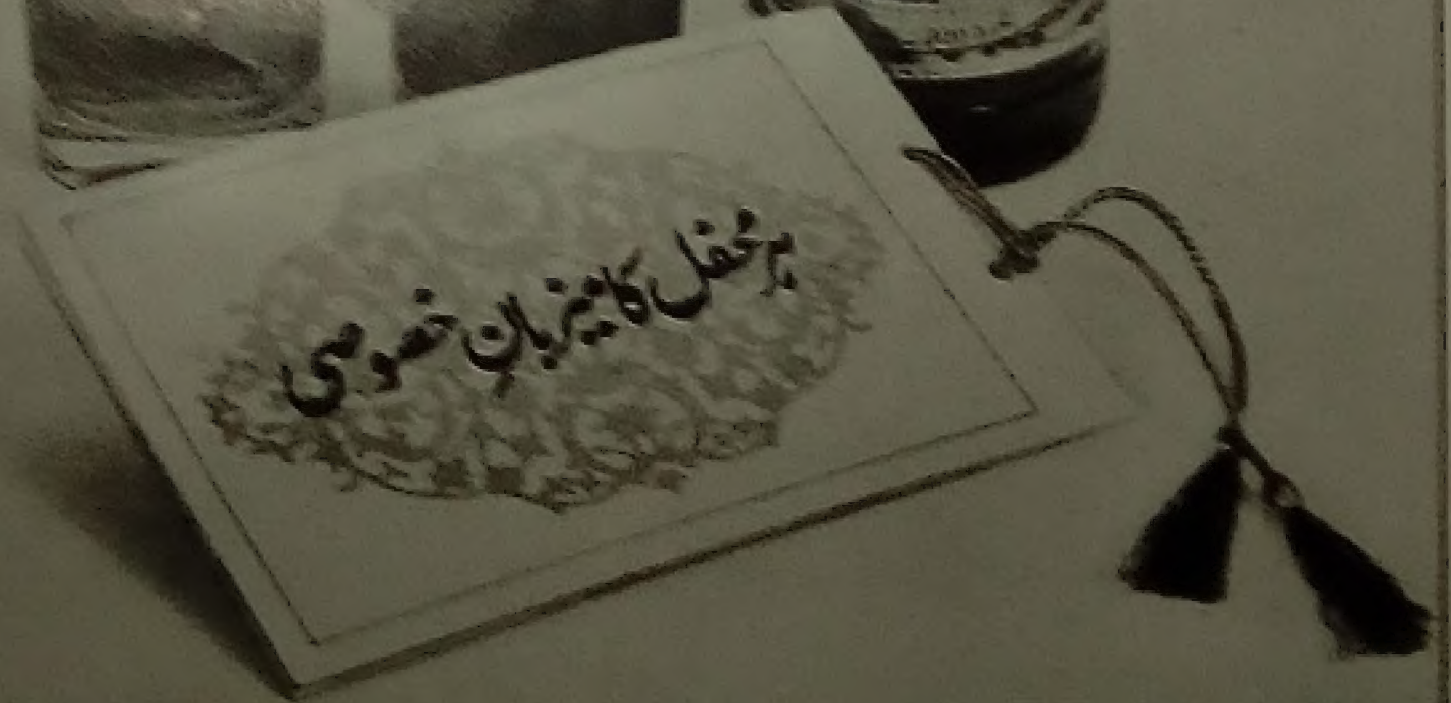 ہر محفل کا میزبانِ خصوصی